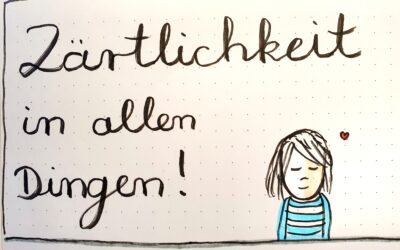 Zärtlichkeit
in allen
Dingen!